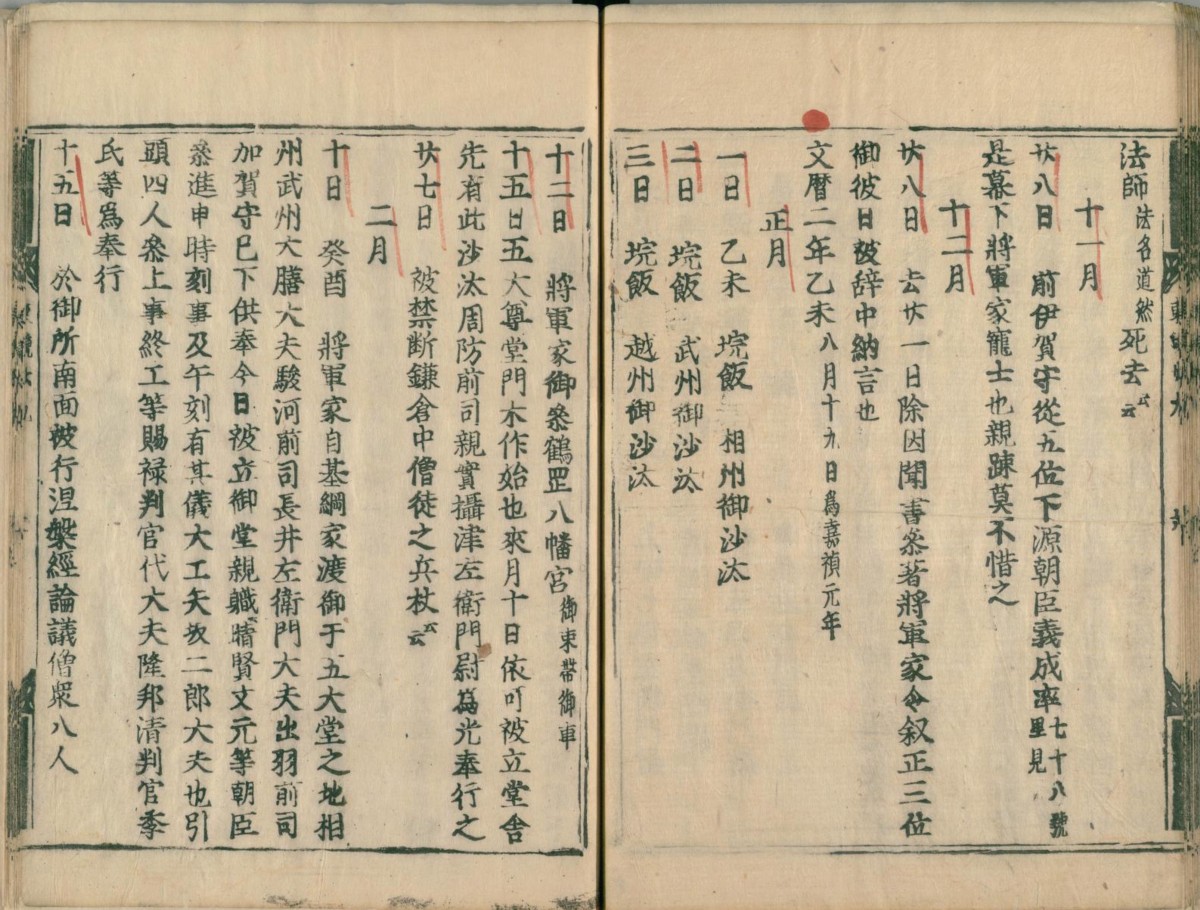 法師法名道然死去云云
十一月
廿八日 前伊賀守從五位下源朝臣義成卒七十八號里見
是幕下將軍家寵士也親踈莫不惜之
十二月
廿八日 去廿一日除因聞書参著將軍家令叙正三位
御彼日被辞中納言也
文暦二年乙未八月十九日爲嘉禎元年
正月
一日 乙未 垸飯 相州御沙汰
二日 垸飯 武州御沙汰
三日 垸飯 越州御沙汰
十二日 將軍家御参鶴罡八幡宮御束帯御車
十五日五大尊堂門木作始也來月十日依可被立堂舎
先有此沙汰周防前司親實攝津左衛門尉為光奉行之
廿七日 被禁断鎌倉中僧徒之兵杖云云
二月
十日 癸酉 將軍家自基綱家渡御于五大堂之地相
州武州大膳大夫駿河前司長井左衛門大夫出羽前司
加賀守已下供奉今日被立御堂親職晴賢文元等朝臣
参進申時刻事及午刻有其儀大工矢坂二郎大夫也引
頭四人参上事終工等賜禄判官代大夫隆邦清判官季
氏等爲奉行
十五日 於御所南面被行涅槃經論議僧衆八人